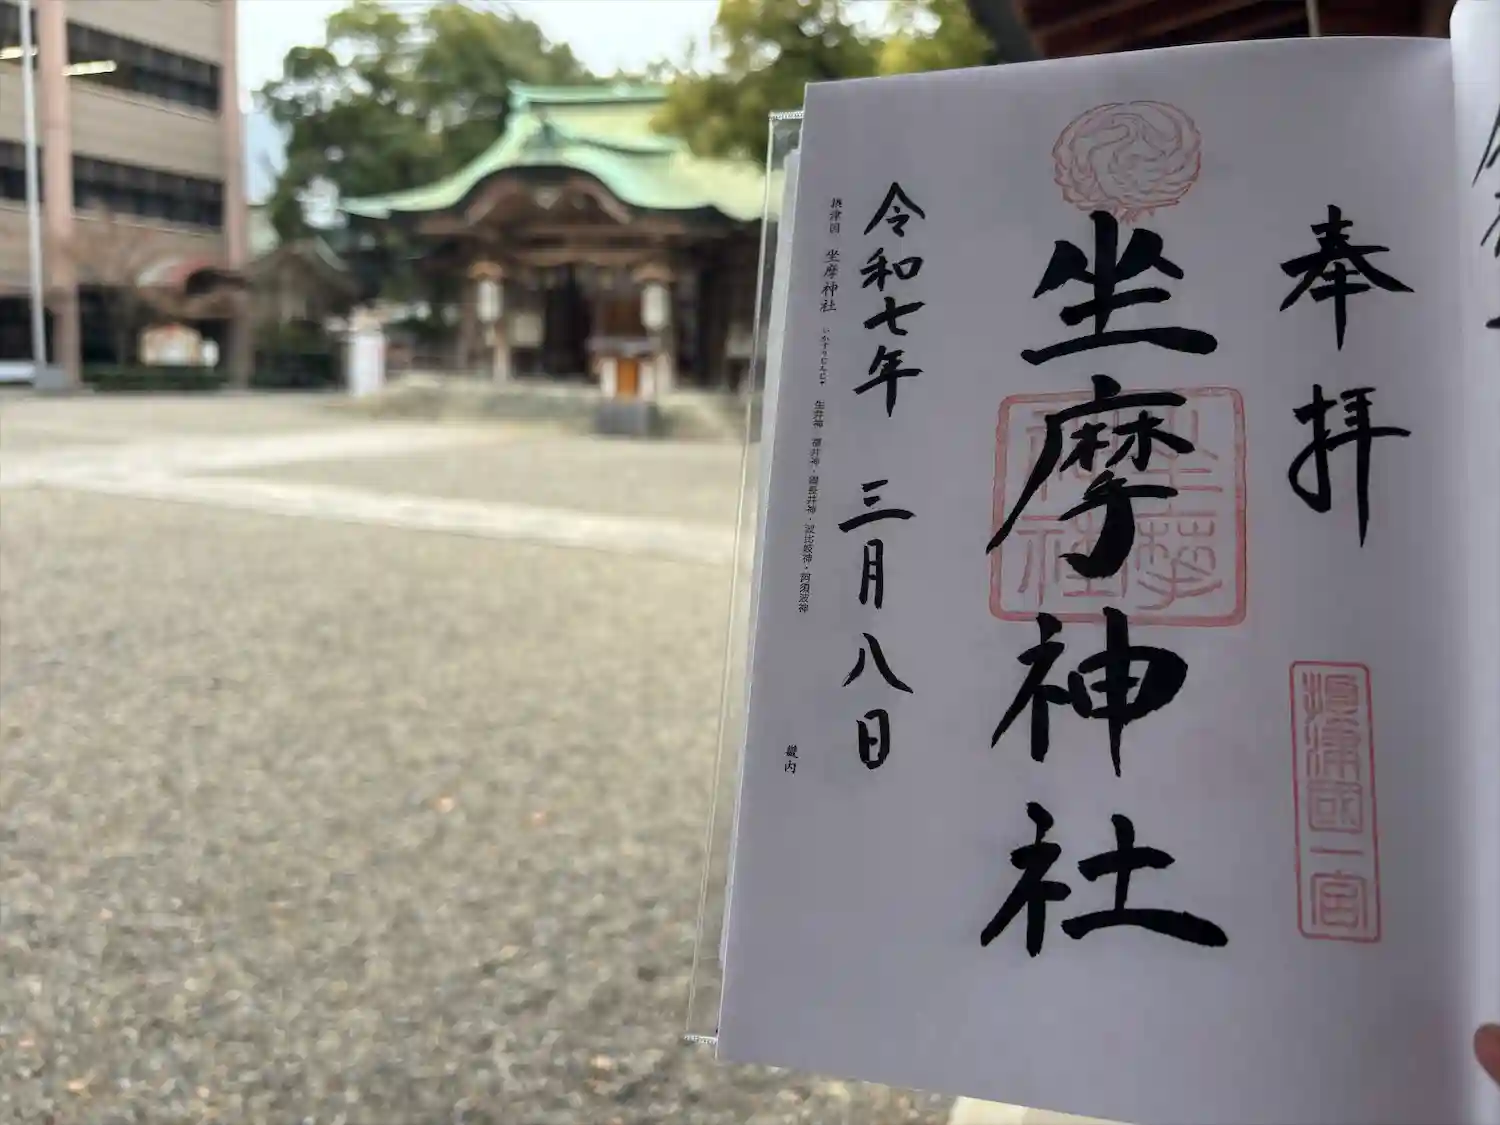 奉拝
摂津國一宮
坐摩神社
坐摩神社
令和七年 三月八日
摂津国 坐摩神社 いかすりじんじゃ 生井神・福井神・綱長井神・波比岐神・阿須波神
畿内